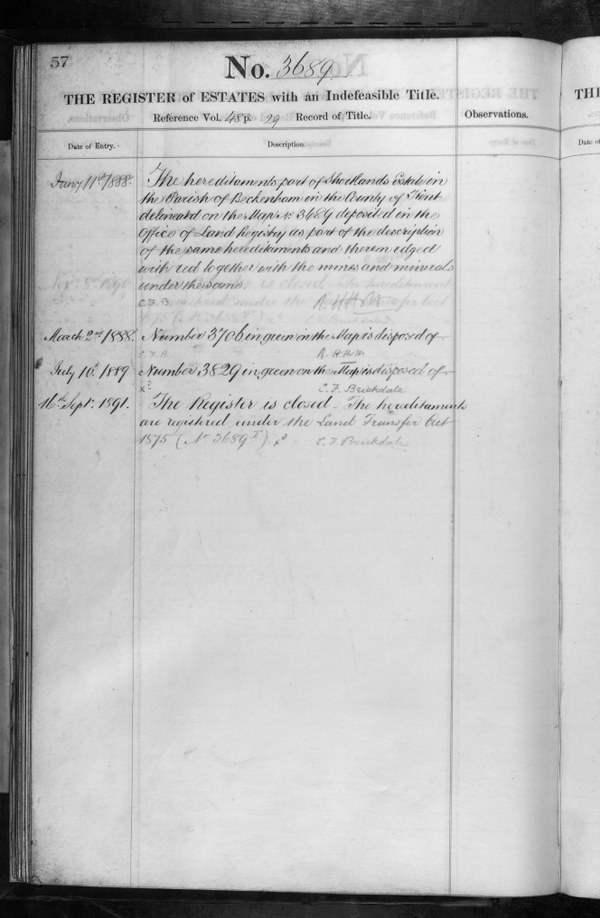 57
No. 3689
THE REGISTER of ESTATES with an Indefeasible Title.
Reference Vol. 48 p. 29 Record of Title.
Observations.
Date of Entry.
Description.
Jany 11th 1888.
The hereditaments part of Shortlands Estate in
the Parish of Beckenham in the County of Kent
delineated on the Map No 3689 deposited in the
Office of Land Registry as part of the description
of the same hereditaments and therein edged
with red together with the mines and minerals
under the same.
C.F.B.
March 2nd 1888.
Number 3706 in green on the Map is disposed of
C.F.B.
July 10. 1889
Number 3829 in green on the Map is disposed of
C. F. Brickdale
16th Sept. 1891.
The Register is closed. The hereditaments
are registered under the Land Transfer Act
1875 (No 3689 T)
C. F. Brickdale
TH
Date of